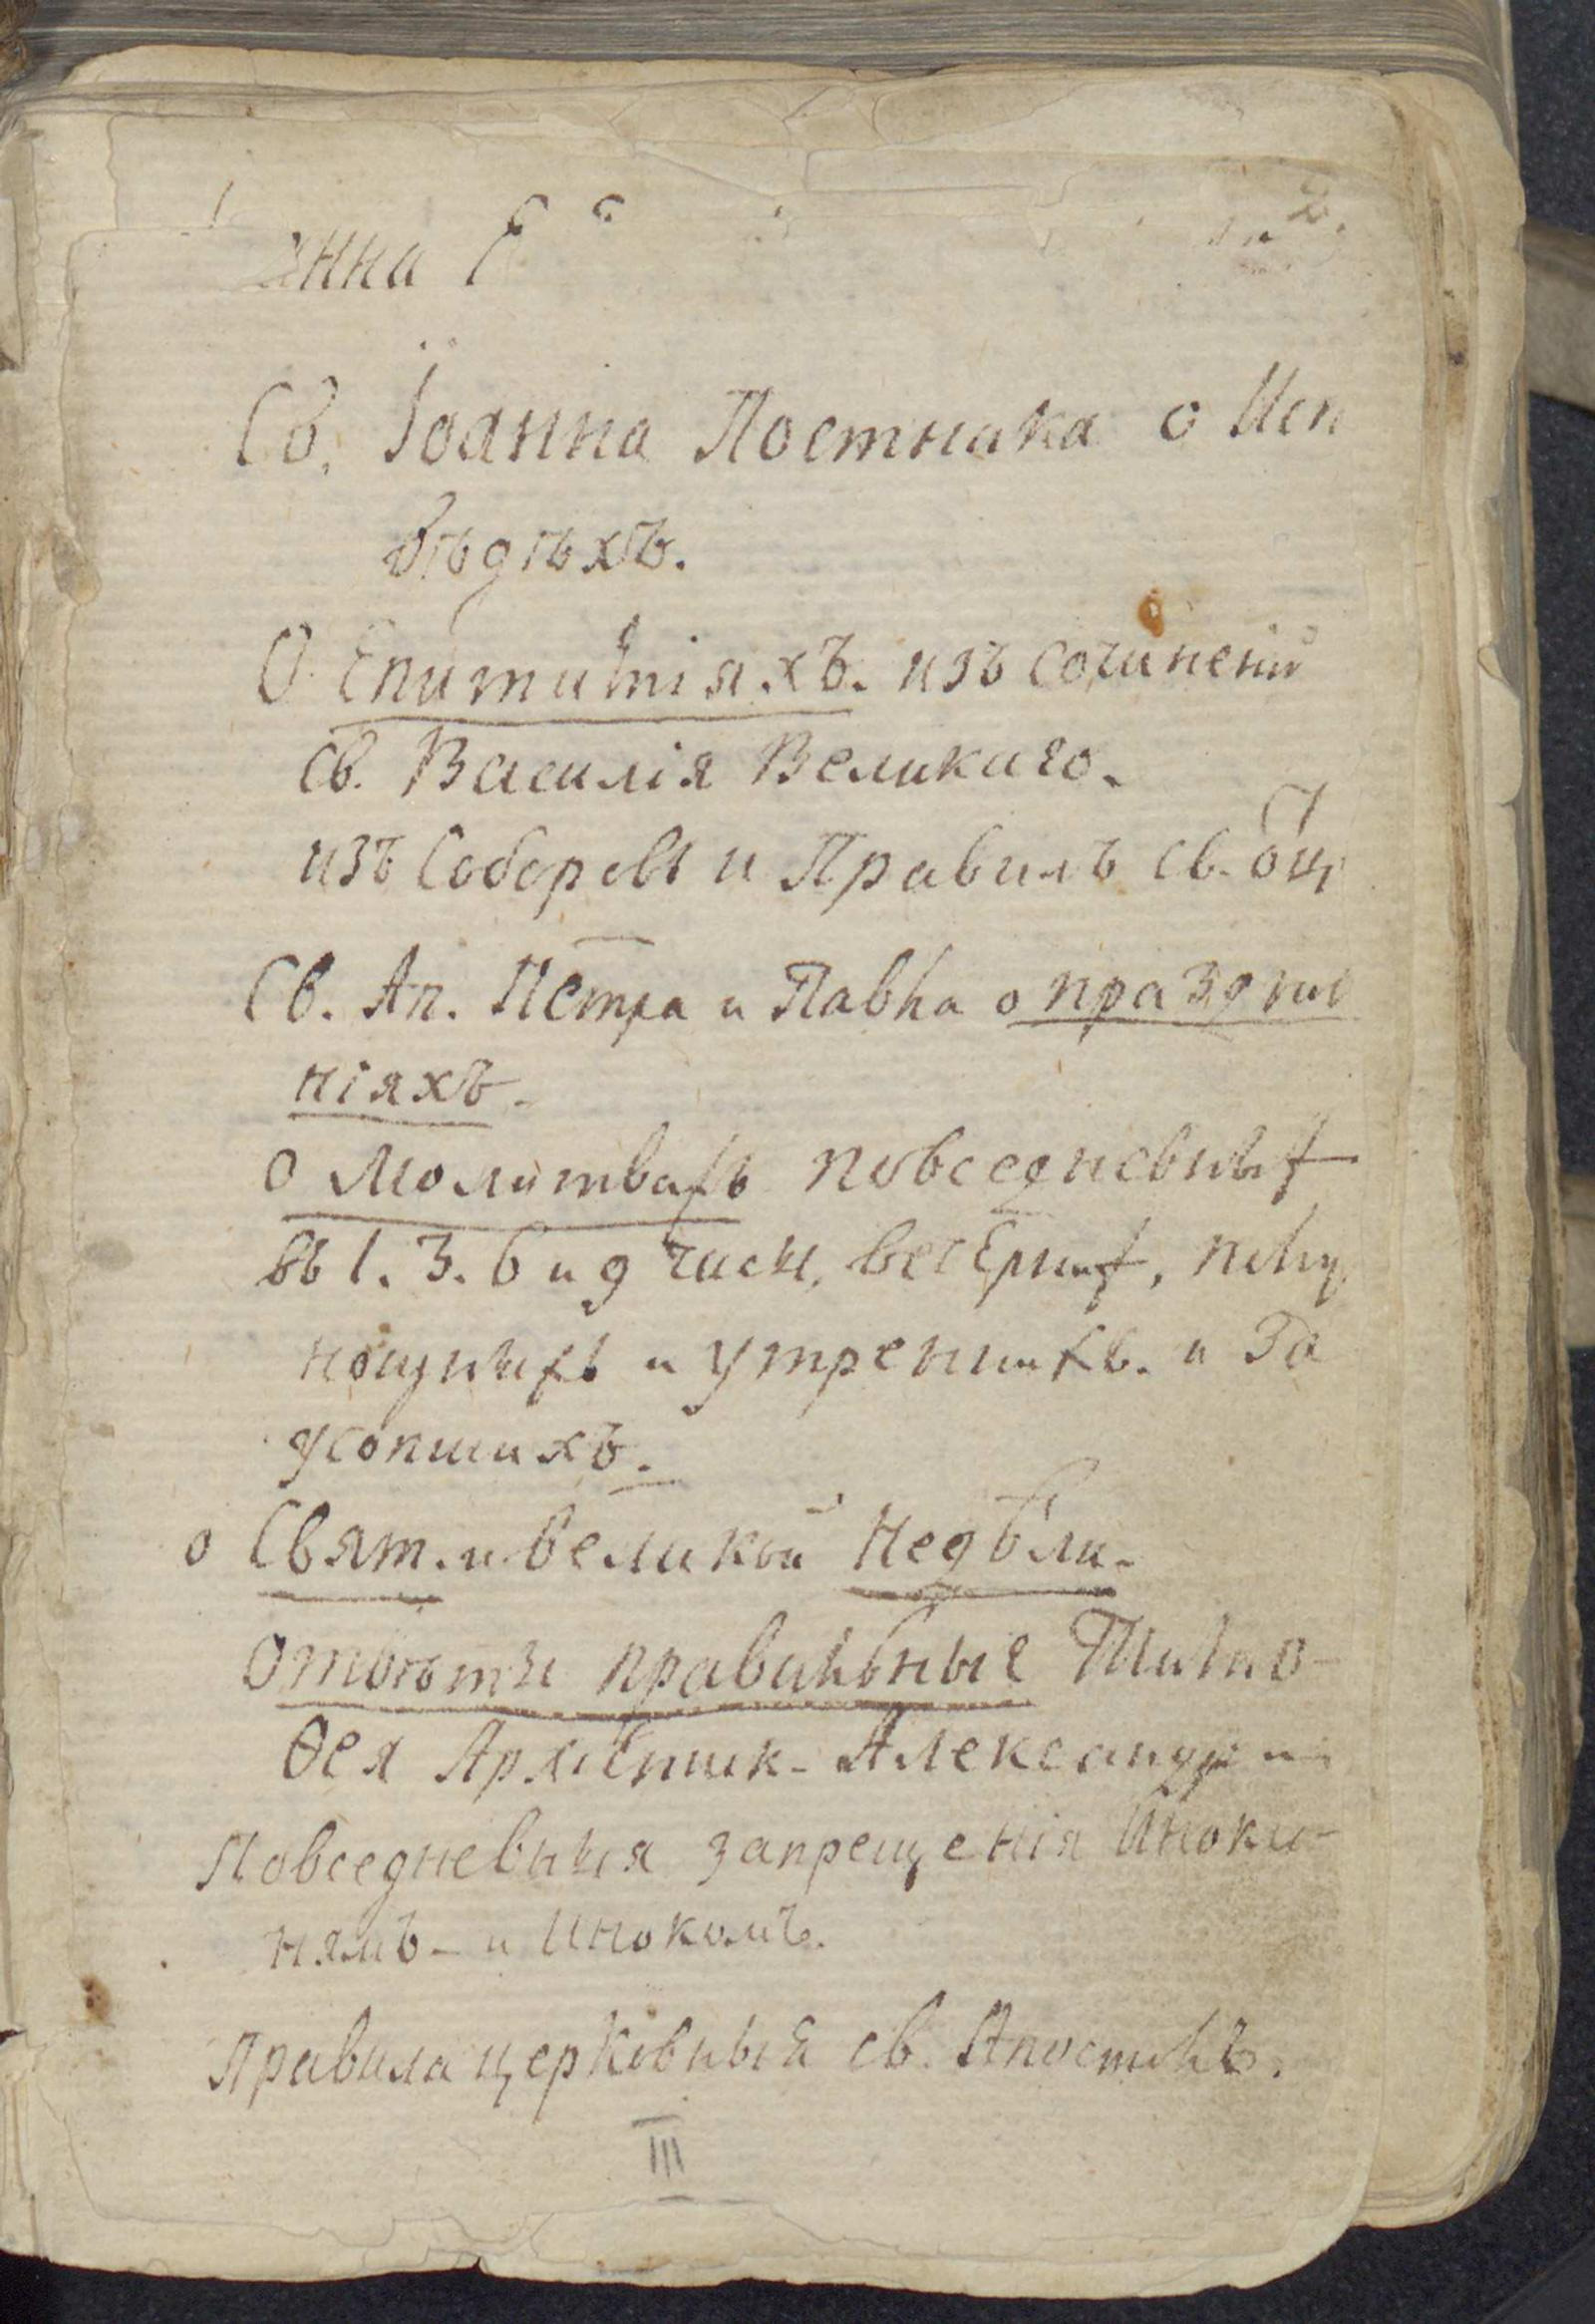 Св. Іоанна Постника о Исп
вѣдѣхъ.
О Епитиміяхъ. изъ сочиненій
св. Василія Великаго.
изъ Соборовъ и Правилъ св. оц
Св. Ап. Петра и Павла о праздно
ніяхъ.
о Молитвахъ повседневныхъ
въ 1. 3. 6 и 9 часы, вечерних, полу
нощныхъ и утренихъ. и За
усопшихъ.
о Свят. и великой Недѣли.
отвѣты правильные Тимо-
ѳея Архіепик. Александри
Повседневныя запрещенія Иноки-
нямъ - и Инокомъ.
Правила церковныя св. Апостолъ.
III